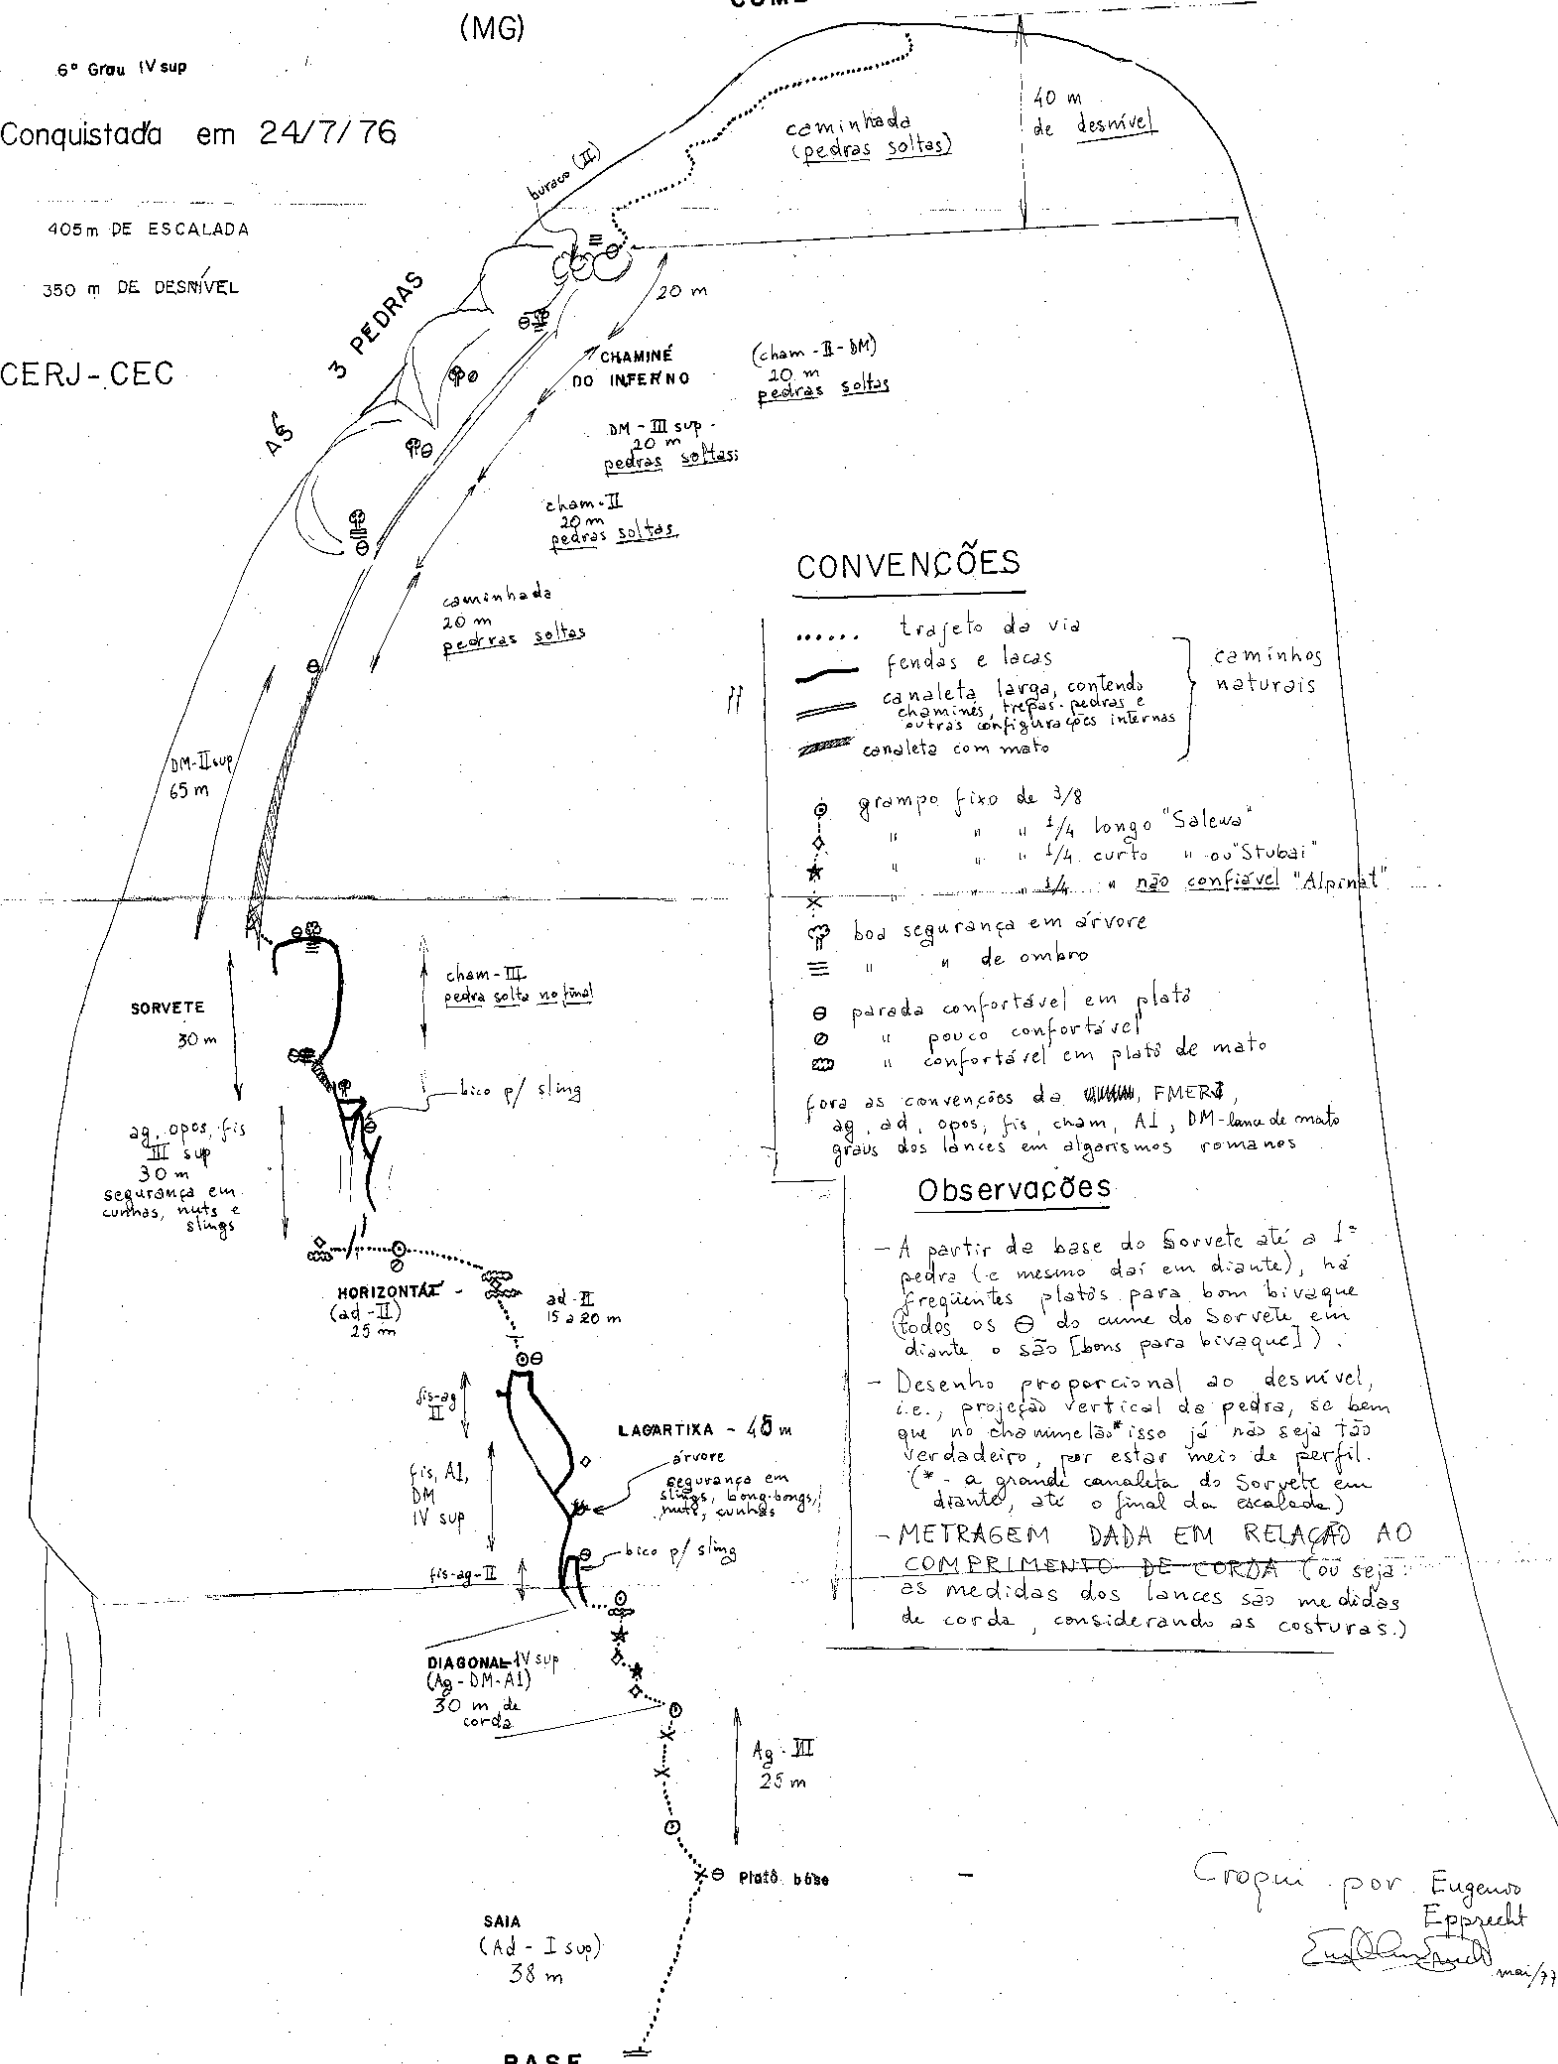 CUME
(MG)
6º Grau IV sup
Conquistada em 24/7/76
405m DE ESCALADA
350 m DE DESNÍVEL
CERJ-CEC
40 m
de desnível
caminhada
(pedras soltas)
buraco (II)
20 m
AS 3 PEDRAS
CHAMINÉ
DO INFERNO
(cham-II-DM)
20 m
pedras soltas
DM-III sup
20 m
pedras soltas
cham-II
20m
pedras soltas
caminhada
20 m
pedrras soltas
DM-II sup
65 m
SORVETE
30 m
cham-III
pedra solta no final
bico p/ sling
ag, opos, fis
III sup
30 m
segurança em
cunhas, nuts e
slings
HORIZONTAL -
(ad-II)
25 m
ad-II
15 a 20 m
fis-ag
II
LAGARTIXA - 45 m
árvore
segurança em
slings, bong-bongs,
nuts, cunhas
fis, A1,
DM
IV sup
bico p/ sling
fis-ag-II
DIAGONAL-IV sup
(Ag-DM-A1)
30 m de
corda
Ag-III
25 m
Platô base
SAIA
(Ad - I sup)
38 m
BASE
CONVENCÕES
trajeto da via
fendas e lacas
canaleta larga, contendo
chaminés, trepas-pedras e
outras configurações internas
canaleta com mato
caminhos
naturais
grampo fixo de 3/8
" " " 1/4 longo "Salewa"
" " " 1/4 curto " ou "Stubai"
" " " 1/4 " não confiável "Alpinat"
boa segurança em árvore
" " de ombro
parada confortável em platô
" pouco confortável
" confortável em platô de mato
fora as convenções da FMERJ,
ag, ad, opos, fis, cham, A1, DM-lance de mato
graus dos lances em algarismos romanos
Observações
- A partir da base do Sorvete até a 1ª
pedra (e mesmo daí em diante), há
freqüentes platôs para bom bivaque
(todos os ⊖ do cume do Sorvete em
diante o são [bons para bivaque]).
- Desenho proporcional ao desnível,
i.e., projeção vertical da pedra, se bem
que no chaminelão* isso já não seja tão
verdadeiro, por estar meio de perfil.
(* - a grande canaleta do Sorvete em
diante, até o final da escalada)
- METRAGEM DADA EM RELAÇÃO AO
COMPRIMENTO DE CORDA (ou seja:
as medidas dos lances são medidas
de corda, considerando as costuras.)
Croqui por Eugenio
Epprecht
mai/77